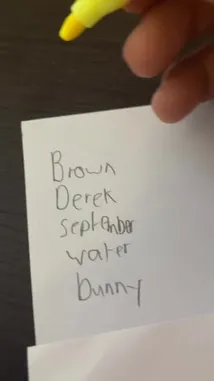 Brown
Derek
september
water
bunny